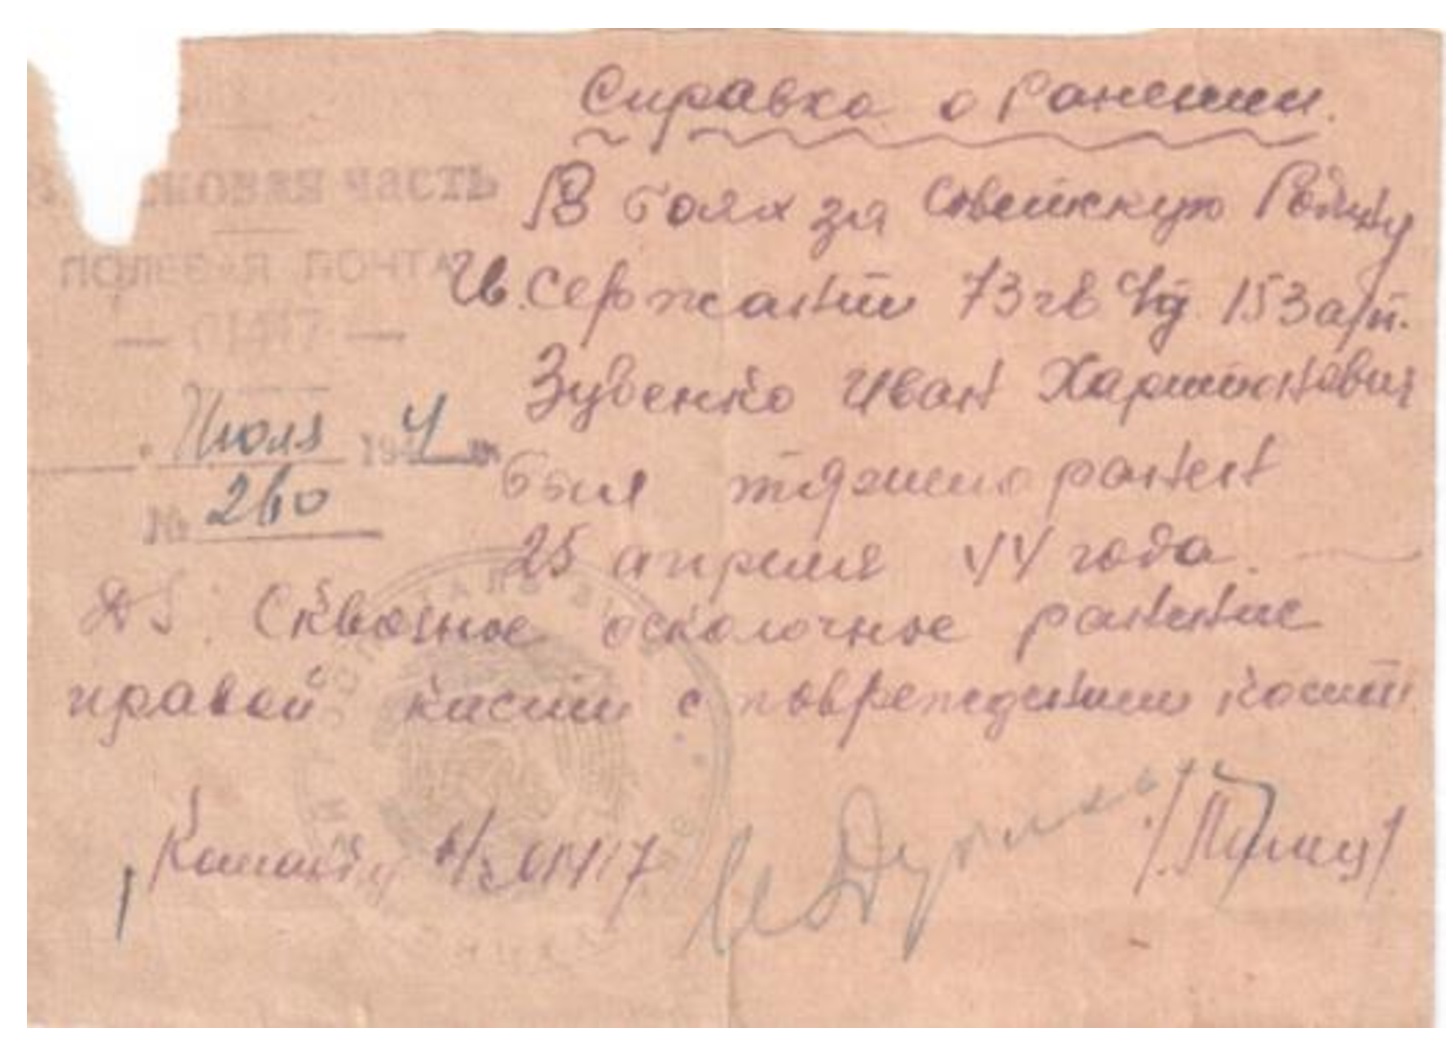 Справка о ранении.
ВОЙСКОВАЯ ЧАСТЬ
ПОЛЕВАЯ ПОЧТА
— 01417 —
Июля 194 4 г.
№ 260
В боях за Советскую Родину
Гв. сержант 73 гв сд 153 ап.
Зубенко Иван Харитонович
был тяжело ранен
25 апреля 44 года.
DS. Сквозное осколочное ранение
правой кисти с повреждением кости
Команд. в/ч 01417